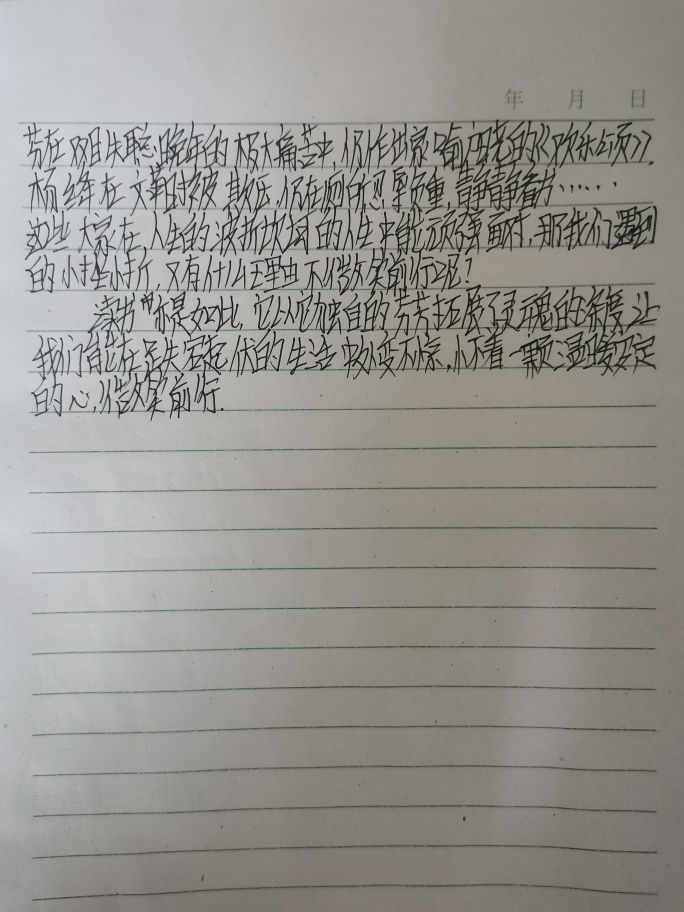 年 月 日
芬在双耳失聪,晚年的极大痛苦中,仍作出家喻户晓的《欢乐颂》,
杨绛在文革时被欺压,仍在厕所忍辱负重,静静看书……
这些大家在人生的波折坎坷的人生中能顽强面对,那我们遇到
的小挫小折,又有什么理由不微笑前行呢?
读书亦是如此,它以它独自的芬芳拓展了灵魂的维度,让
我们能在得失起伏的生活中处变不惊,怀着一颗温暖安定
的心,微笑前行.